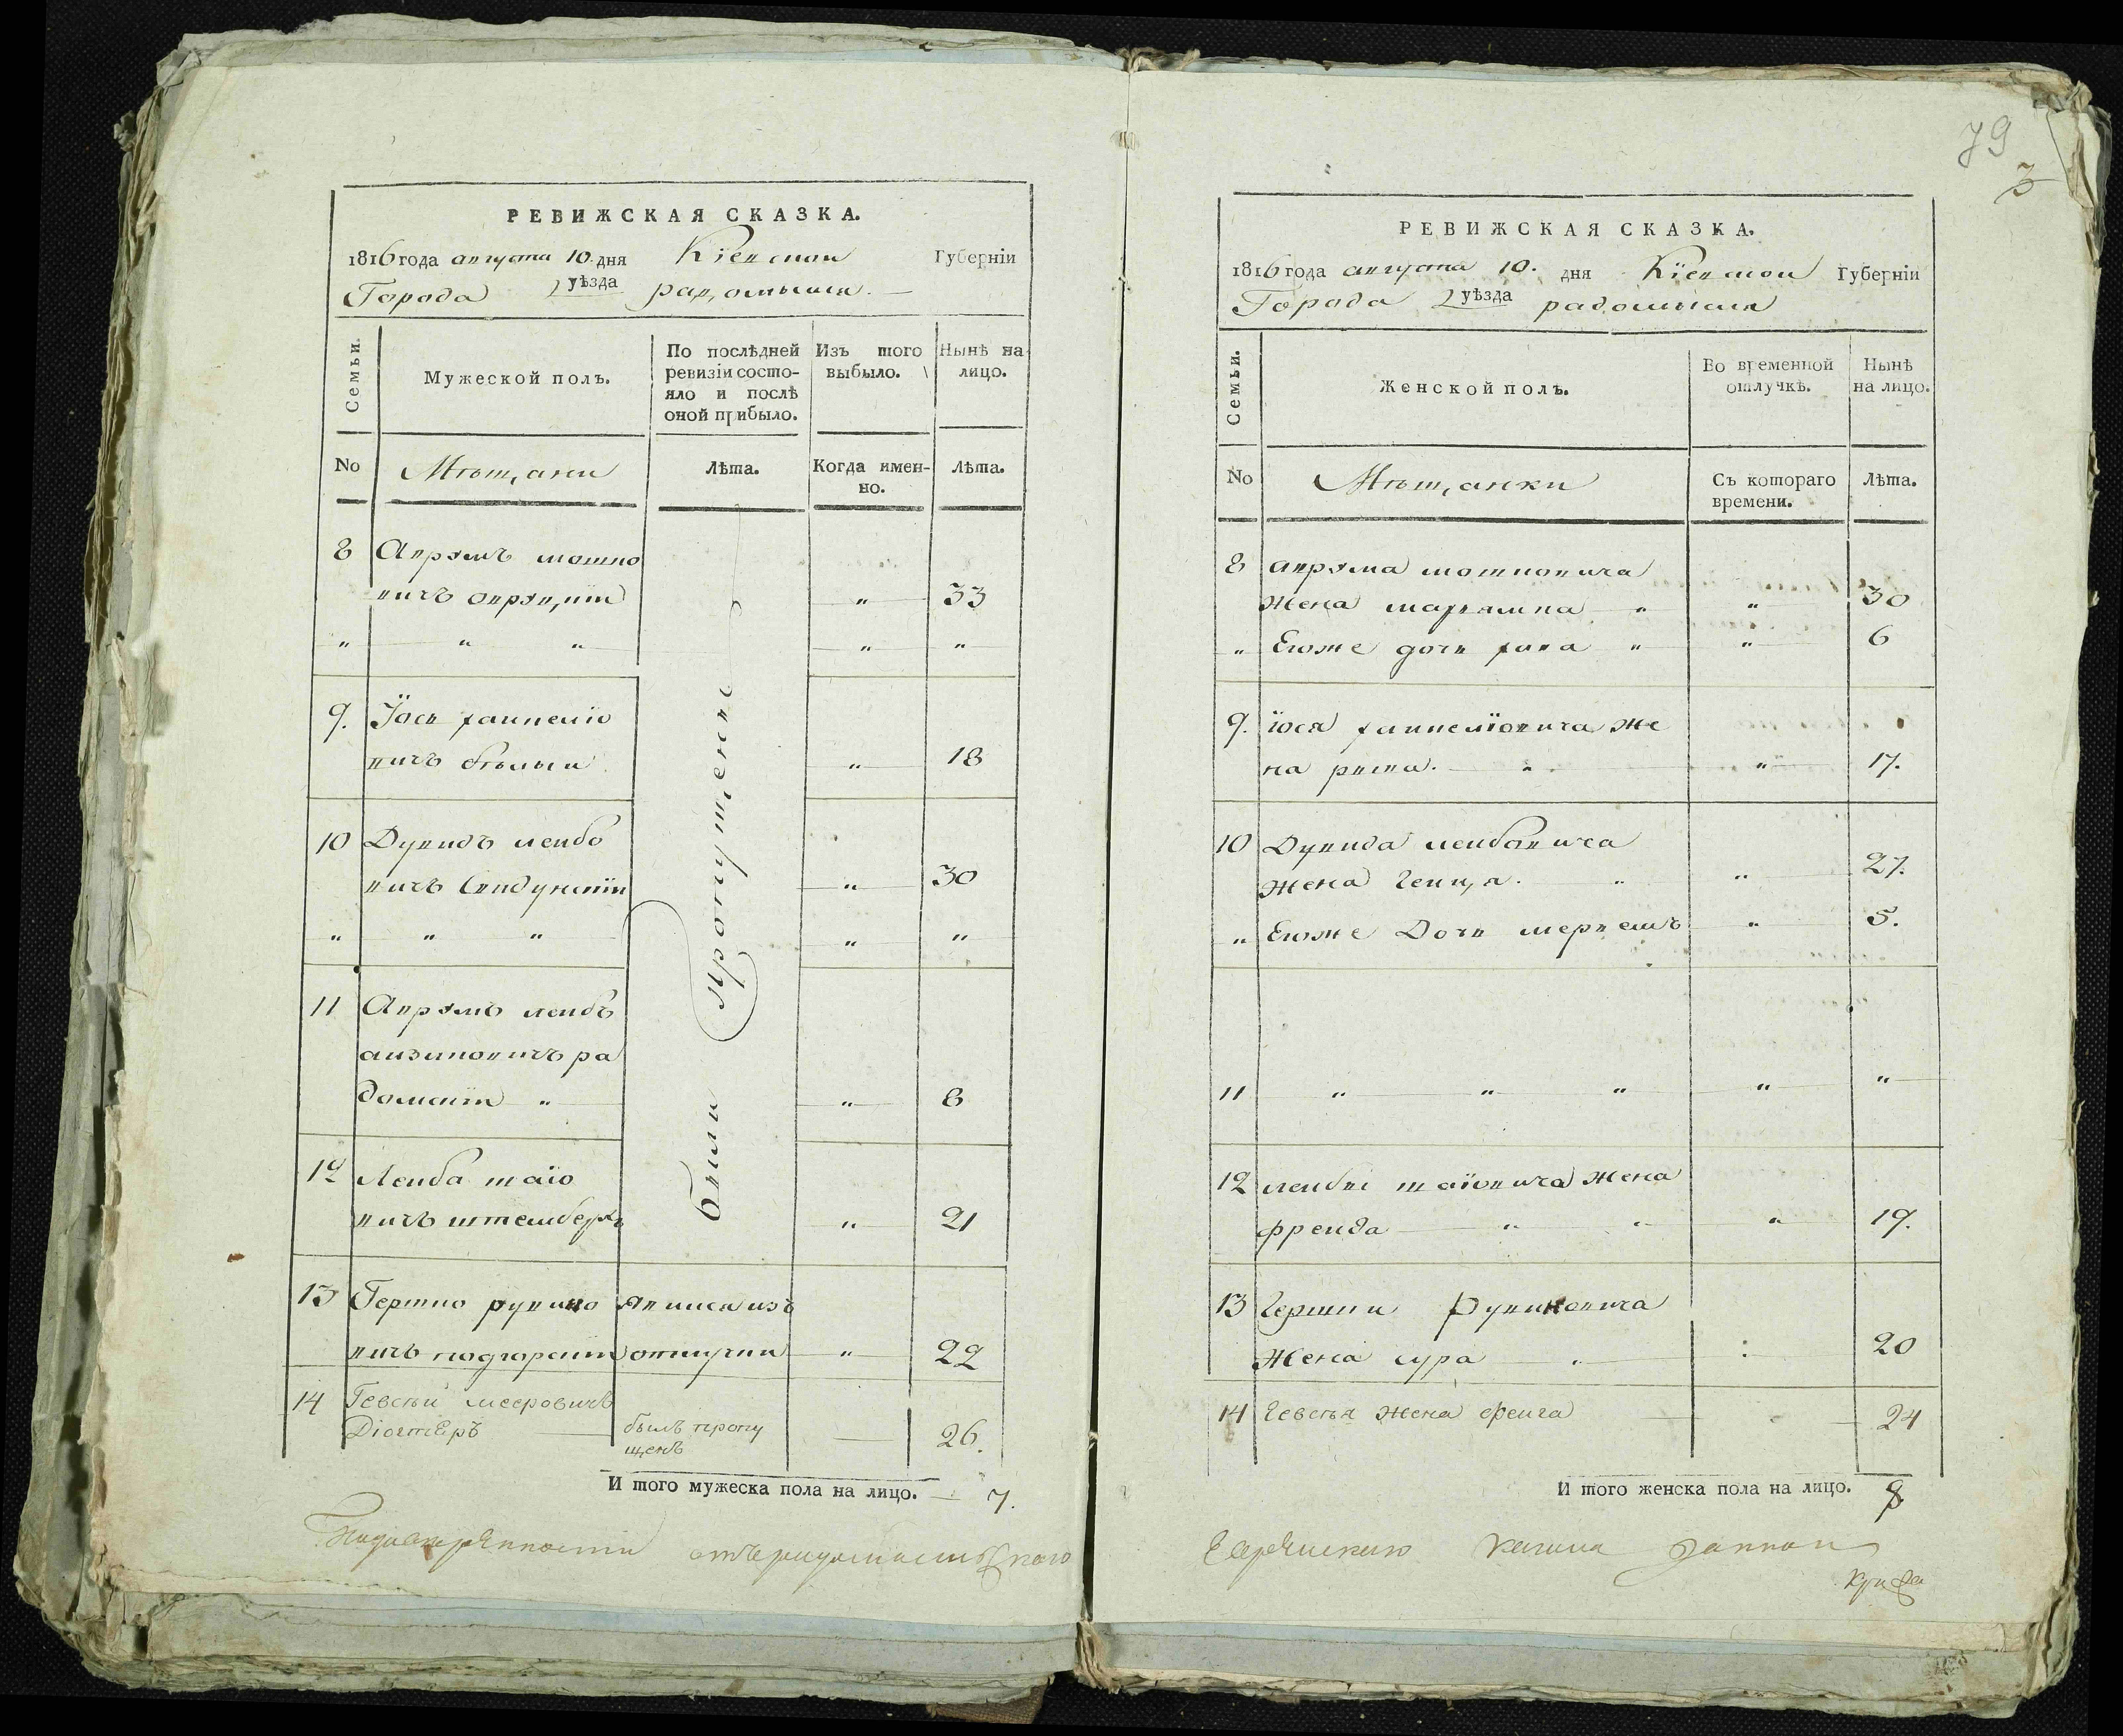 79
3
РЕВИЖСКАЯ СКАЗКА.
1816 года августа 10. дня Кіевской Губерніи
Города уѣзда радомысля.
Семьи.
Мужеской полъ.
По послѣдней ревизіи состо-
яло и послѣ
оной прибыло.
Изъ того
выбыло.
Нынѣ на
лицо.
No
Мѣщани
Лѣта.
Когда имен-
но.
Лѣта.
8 Аврумъ мошко
вичъ „ 33
„ „ „ „ „
9. Іось хаимеліо
вичъ бѣлый „ 18
10 Дувидъ лейбо
вичъ „ 30
„ „ „ „ „
11 Аврумъ лейбъ
айзиковичъ ра
домскій „ „ 8
12 Лейба шаіо
вичъ штемберхъ „ 21
были пропущены
13 Гершко рувино явился изъ
вичъ подгорскій отлучки „ 22
14 Гевсѣй мееровичъ
Діогтеръ былъ пропу
щенъ 26.
И того мужеска пола на лицо. 7.
РЕВИЖСКАЯ СКАЗКА.
1816 года августа 10. дня Кіевской Губерніи
Города уѣзда радомысля
Семьи.
Женской полъ.
Во временной
отлучкѣ.
Нынѣ
на лицо.
No
Мѣщанки
Съ котораго
времени.
Лѣта.
8 аврума мошковича
жена марьямка „ „ 30
„ Егоже дочь хава „ „ 6
9. іося хаимеліовича же
на „ „ 17.
10 Дувида лейбовича
жена Гейця. „ „ 27.
„ Егоже Дочь мернемъ „ 5.
11 „ „ „ „ „
12 лейбы шаіовича жена
фрейда „ „ „ 19.
13 Гершки Рувиновича
жена сура „ : 20
14 Гевсѣя жена фейга 24
И того женска пола на лицо. 8